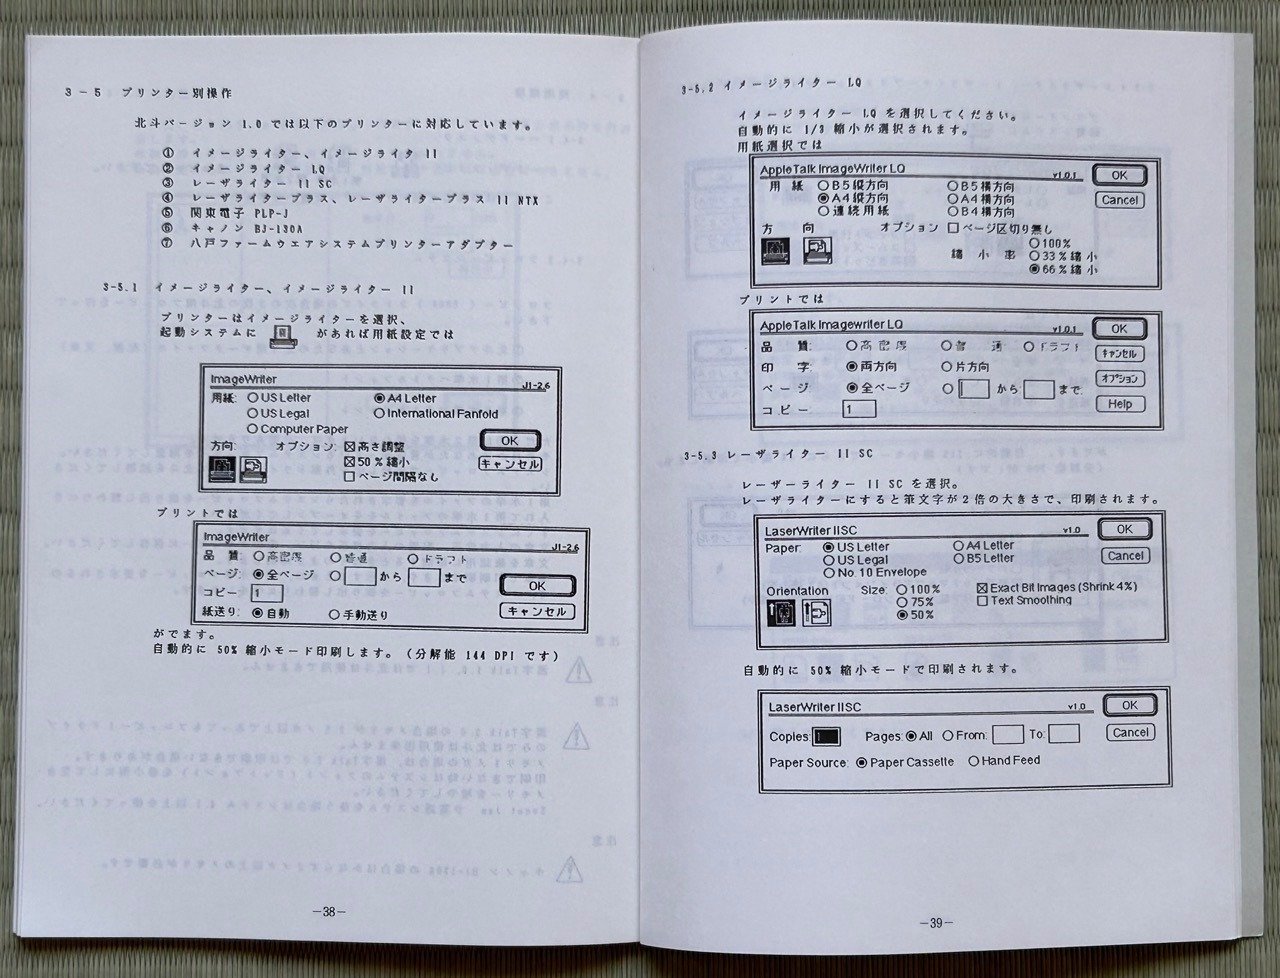 3－5 プリンター別操作
北斗バージョン 1.0 では以下のプリンターに対応しています。
① イメージライター、イメージライタ II
② イメージライター LQ
③ レーザライター II SC
④ レーザライタープラス、レーザライタープラス II NTX
⑤ 関東電子 PLP-J
⑥ キャノン BJ-130A
⑦ 八戸ファームウエアシステムプリンターアダプター
3-5.1 イメージライター、イメージライター II
プリンターはイメージライターを選択、
起動システムに があれば用紙設定では
ImageWriter J1-2.6
用紙: US Letter A4 Letter
US Legal International Fanfold
Computer Paper
方向: オプション: 高さ調整 OK
50 % 縮小 キャンセル
ページ間隔なし
プリントでは
ImageWriter J1-2.6
品 質 高密度 普通 ドラフト
ページ: 全ページ から まで
コピー 1 OK
紙送り: 自動 手動送り キャンセル
がでます。
自動的に 50% 縮小モード印刷します。（分解能 144 DPI です）
－38－
3-5.2 イメージライター LQ
イメージライター LQ を選択してください。
自動的に 1/3 縮小が選択されます。
用紙選択では
AppleTalk ImageWriter LQ v1.0.1 OK
用 紙 B5縦方向 B5横方向
A4縦方向 A4横方向 Cancel
連続用紙 B4横方向
方 向 オプション ページ区切り無し
縮 小 率 100%
33%縮小
66%縮小
プリントでは
AppleTalk Imagewriter LQ v1.0.1 OK
品 質: 高密度 普 通 ドラフト キャンセル
印 字: 両方向 片方向
ページ: 全ページ から まで オプション
コピー 1 Help
3-5.3 レーザライター II SC
レーザーライター II SC を選択。
レーザライターにすると筆文字が２倍の大きさで、印刷されます。
LaserWriter IISC v1.0 OK
Paper: US Letter A4 Letter
US Legal B5 Letter Cancel
No. 10 Envelope
Orientation Size: 100% Exact Bit Images (Shrink 4%)
75% Text Smoothing
50%
自動的に 50% 縮小モードで印刷されます。
LaserWriter IISC v1.0 OK
Copies: 1 Pages: All From: To: Cancel
Paper Source: Paper Cassette Hand Feed
－39－